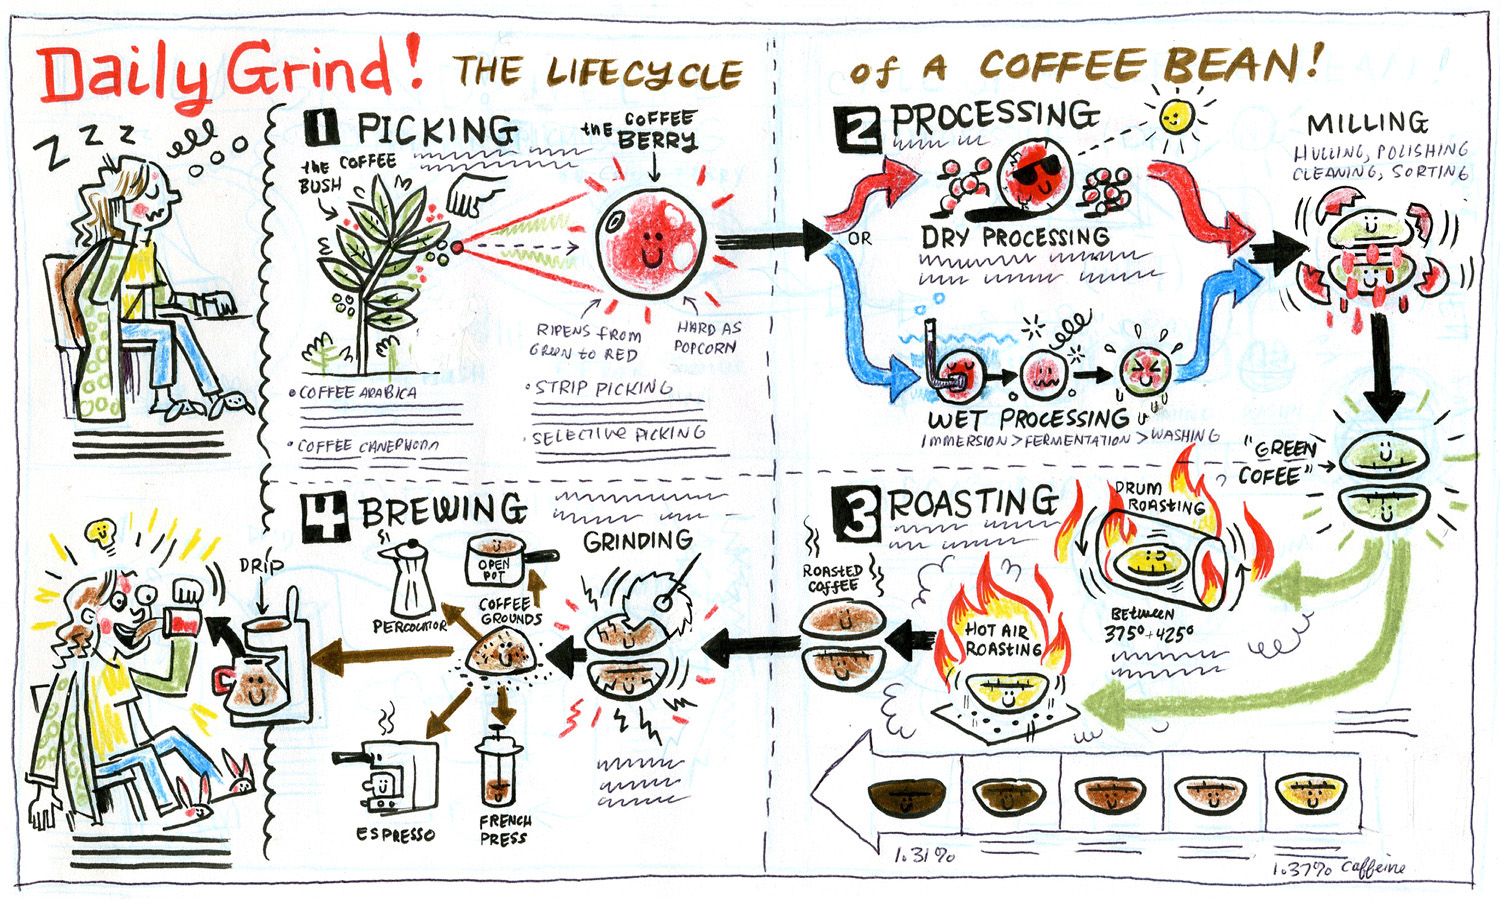 Daily Grind! THE LIFECYCLE of A COFFEE BEAN!
Z Z Z Z
1 PICKING
the COFFEE
BUSH
the COFFEE
BERRY
RIPENS from
GREEN to RED
HARD AS
POPCORN
• COFFEE ARABICA
• COFFEE CANEPHORA
• STRIP PICKING
• SELECTIVE PICKING
2 PROCESSING
OR
DRY PROCESSING
WET PROCESSING
IMMERSION > FERMENTATION > WASHING
MILLING
HULLING, POLISHING
CLEANING, SORTING
"GREEN
COFEE"
3 ROASTING
DRUM
ROASTING
BETWEEN
375° + 425°
HOT AIR
ROASTING
ROASTED
COFFEE
1.31%
1.37% caffeine
4 BREWING
GRINDING
COFFEE
GROUNDS
OPEN
POT
PERCOLATOR
DRIP
ESPRESSO
FRENCH
PRESS